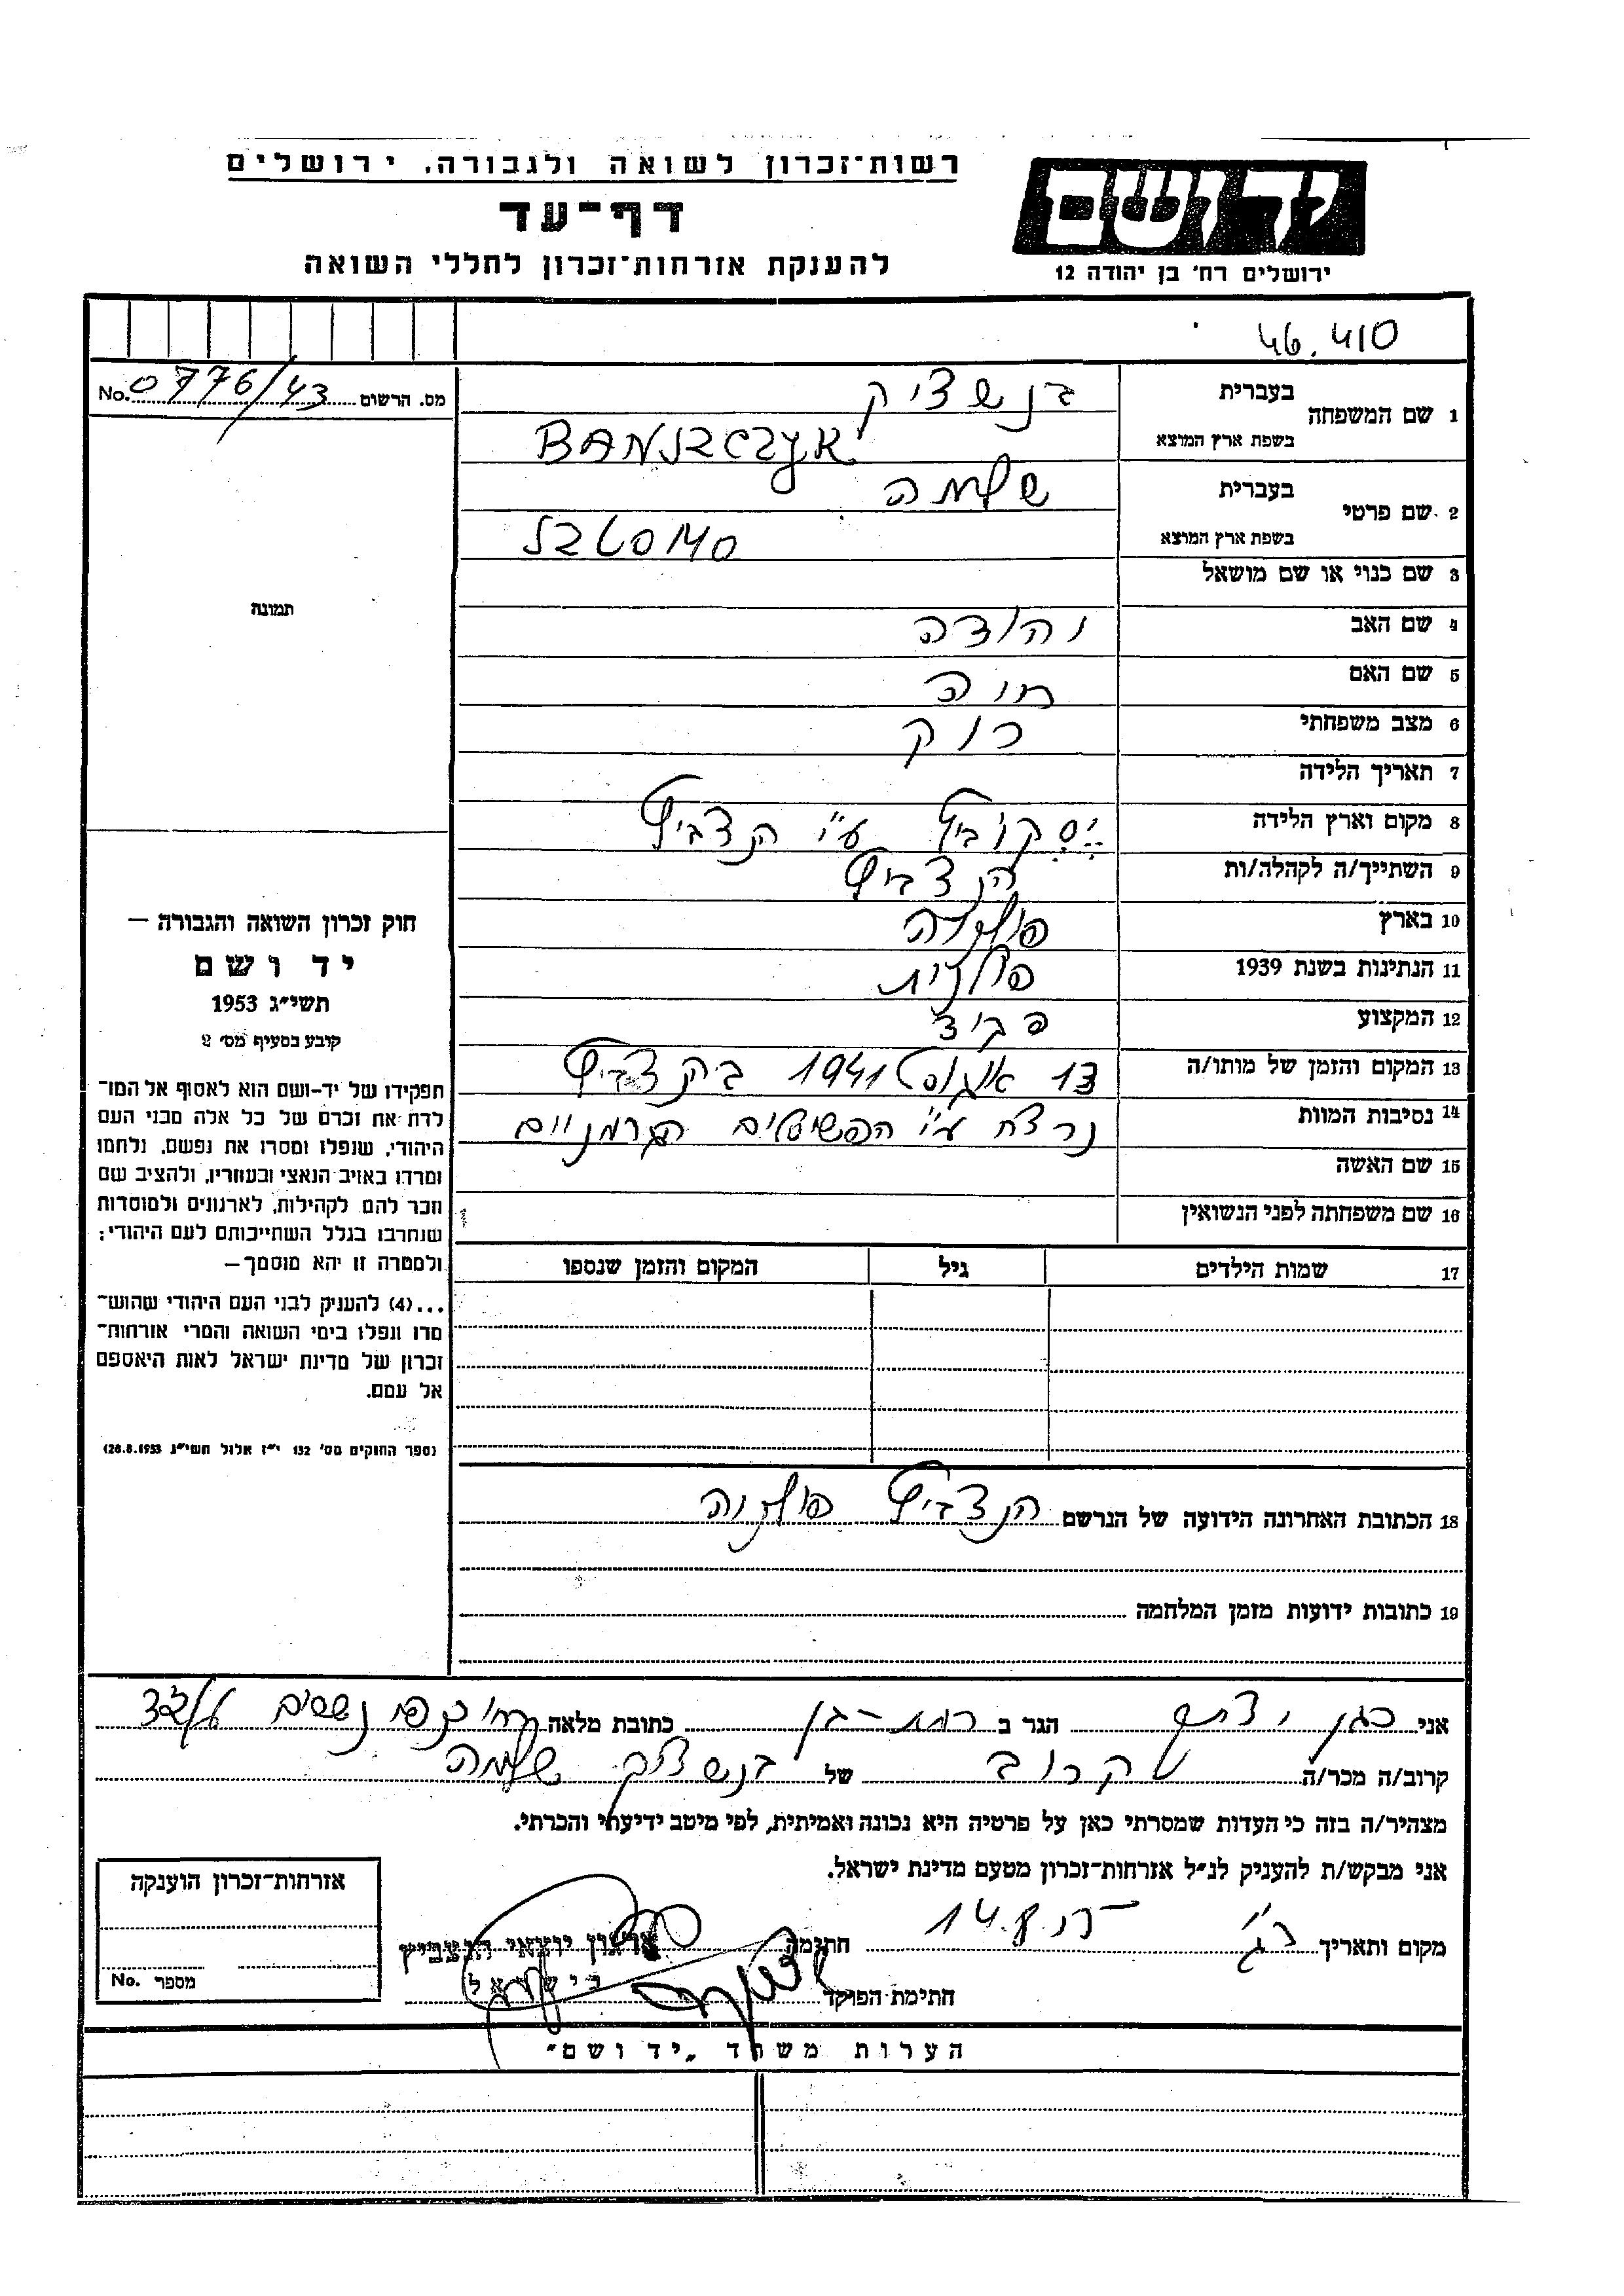 רשות־זכרון לשואה ולגבורה, ירושלים
דף־עד
להענקת אזרחות־זכרון לחללי השואה
ידושם
ירושלים רח' בן יהודה 12
46.410
מס. הרשום 0776/43 No.
1 שם המשפחה
בעברית בנשציק
בשפת ארץ המוצא BANSZCZYK
2 שם פרטי
בעברית שלמה
בשפת ארץ המוצא
3 שם כנוי או שם מושאל
תמונה
4 שם האב יהודה
5 שם האם חוה
6 מצב משפחתי רוק
7 תאריך הלידה
8 מקום וארץ הלידה ע"י הנצביץ
9 השתייך/ה לקהלה/ות הנצביץ
10 בארץ פולניה
11 הנתינות בשנת 1939 פולנית
12 המקצוע
13 המקום והזמן של מותו/ה 13 אוגוסט 1941 בהנצביץ
14 נסיבות המוות נרצח ע"י הפשיסטים הגרמניים
15 שם האשה
16 שם משפחתה לפני הנשואין
17 שמות הילדים גיל המקום והזמן שנספו
חוק זכרון השואה והגבורה —
יד ושם
תשי"ג 1953
קובע בסעיף מס' 2
תפקידו של יד־ושם הוא לאסוף אל המו־
לדת את זכרם של כל אלה מבני העם
היהודי, שנפלו ומסרו את נפשם, נלחמו
ומרדו באויב הנאצי ובעוזריו, ולהציב שם
וזכר להם לקהילות, לארגונים ולמוסדות
שנחרבו בגלל השתייכותם לעם היהודי;
ולמטרה זו יהא מוסמך—
...(4) להעניק לבני העם היהודי שהוש־
מדו ונפלו בימי השואה והמרי אזרחות־
זכרון של מדינת ישראל לאות היאספם
אל עמם.
(ספר החוקים מס' 132 י"ז אלול תשי"ג 28.8.1953)
18 הכתובת האחרונה הידועה של הנרשם הנצביץ פולניה
19 כתובות ידועות מזמן המלחמה
אני כגן יוסף הגר ב רמת-גן כתובת מלאה
קרוב/ה מכר/ה קרוב של בנשציק שלמה
מצהיר/ה בזה כי העדות שמסרתי כאן על פרטיה היא נכונה ואמיתית, לפי מיטב ידיעתי והכרתי.
אני מבקש/ת להעניק לנ"ל אזרחות־זכרון מטעם מדינת ישראל.
מקום ותאריך חתימה
ארגון יוצאי הנצביץ
בישראל
חתימת הפוקד
אזרחות־זכרון הוענקה
מספר No.
הערות משרד "יד ושם"